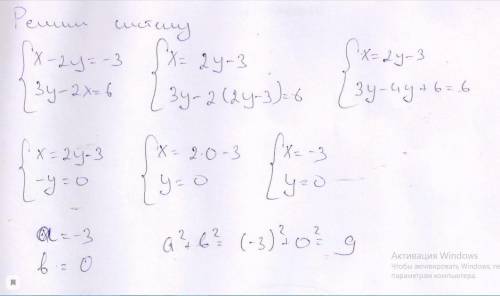 Решим систему
{x-2y=-3 {x= 2y-3 {x=2y-3
{3y-2x=6 {3y-2(2y-3)=6 {3y-4y+6=6
{x=2y-3 {x=2·0-3 {x=-3
{-y=0 {y=0 {y=0
a=-3 a²+b²= (-3)²+0²= 9
b=0
Активация Windows
Чтобы активировать Windows, пе
параметрам компьютера.